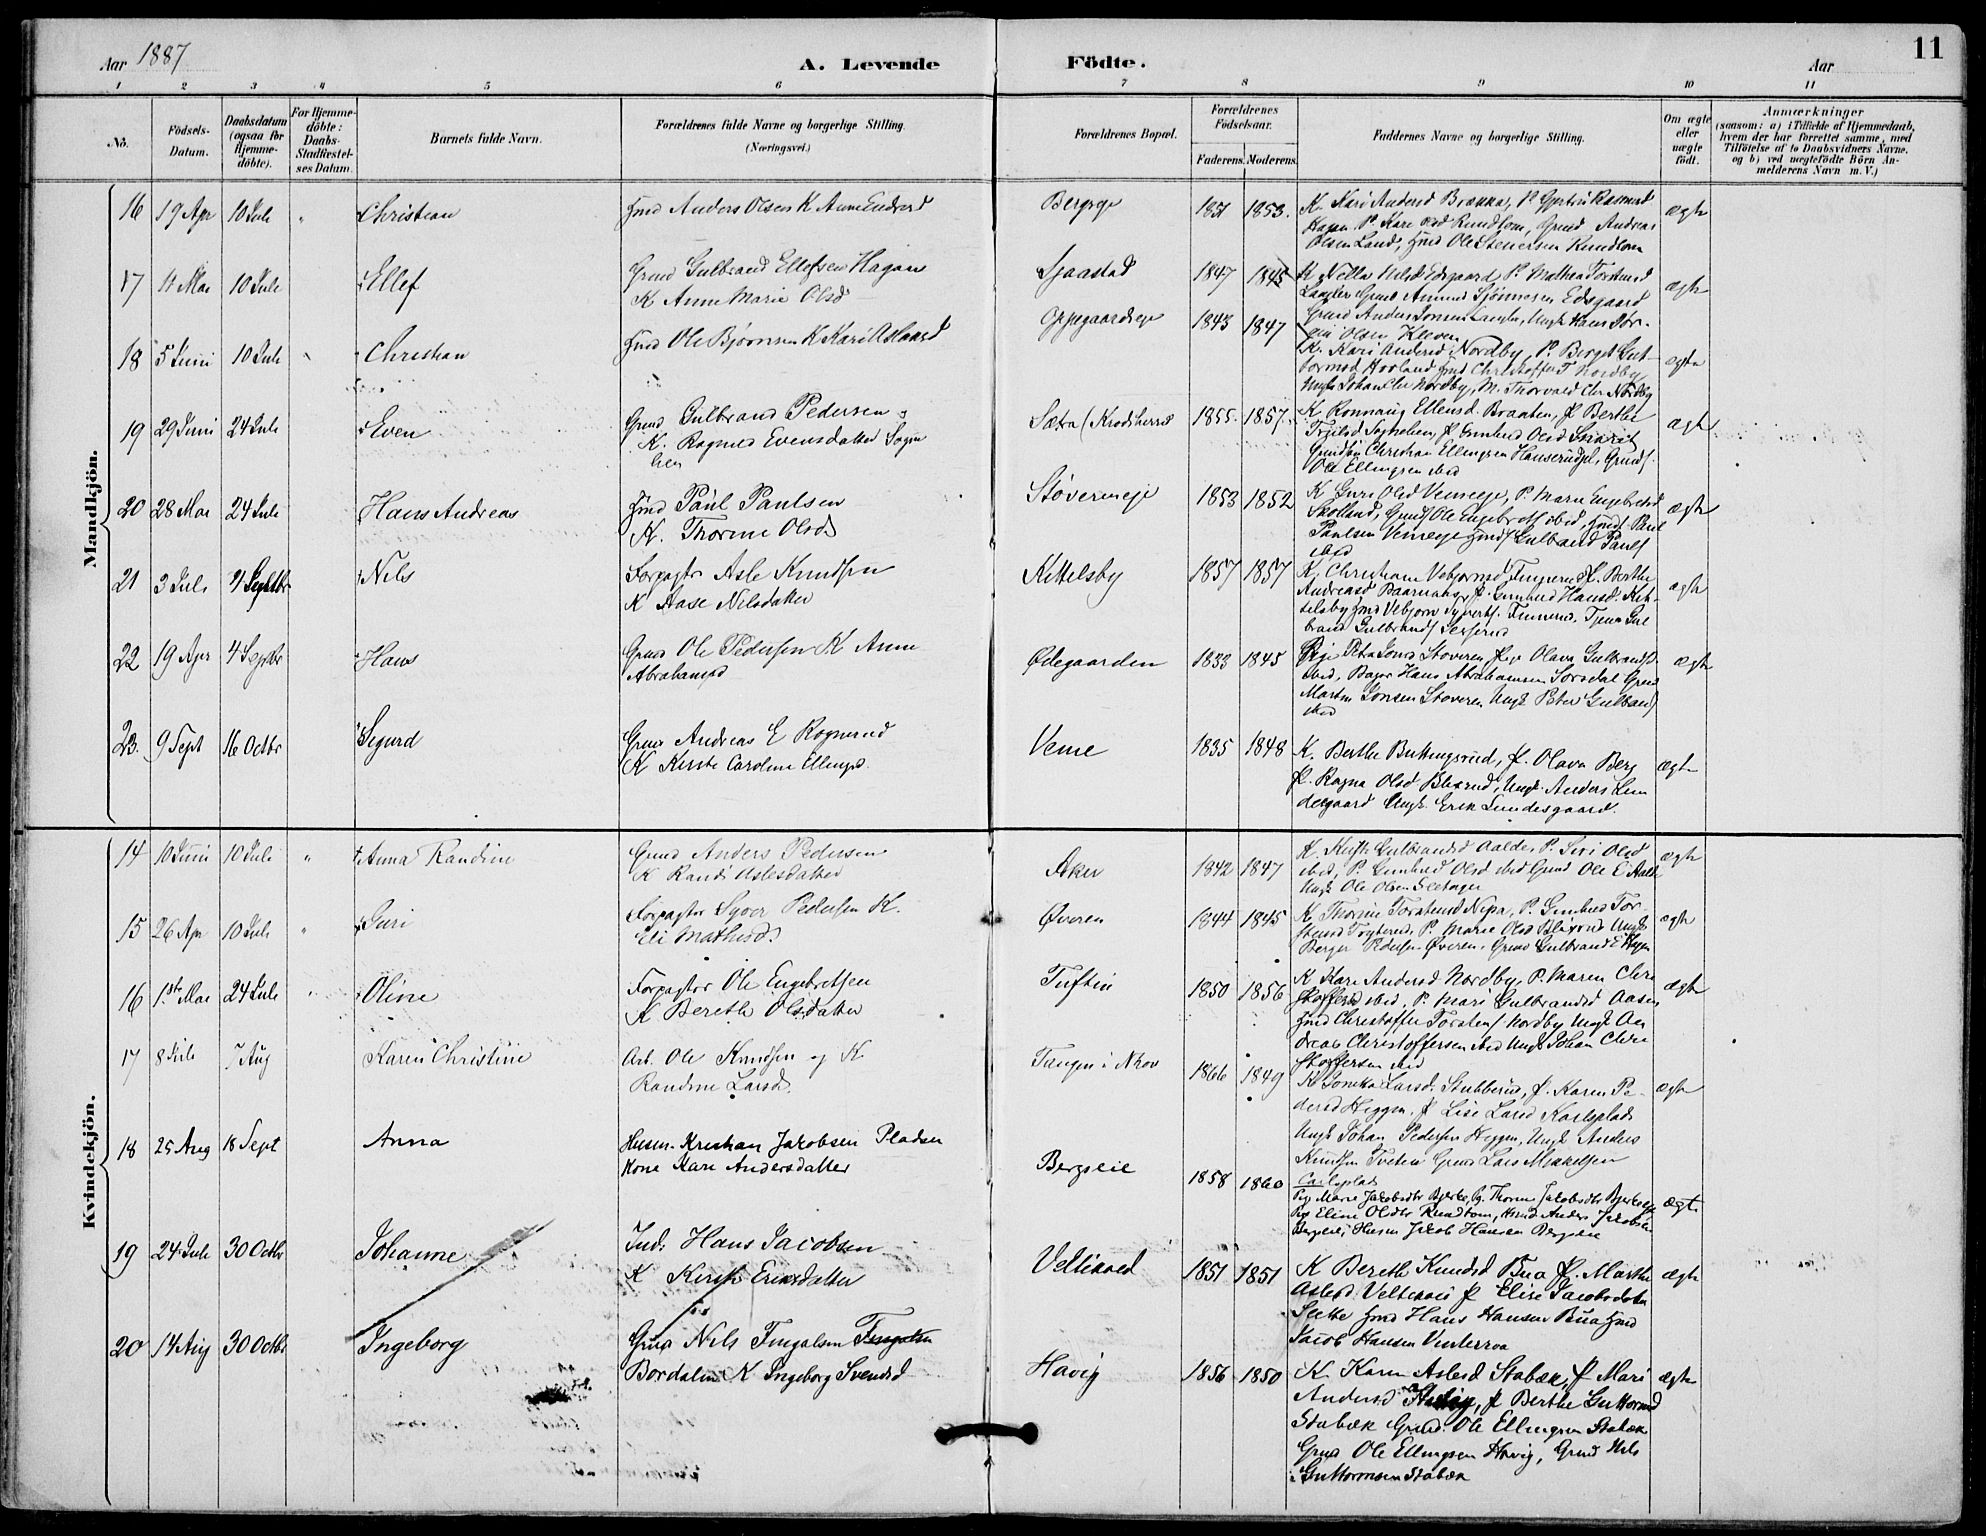 Aar 1887
A. Levende Födte.
Aar
11
1 2 3 4 5 6 7 8 9 10 11
No.
Födsels-Datum.
Daabsdatum (ogsaa for Hjemme-döbte).
For Hjemme-döbte: Daabs-Stadfæstel-ses Datum.
Barnets fulde Navn.
Forældrenes fulde Navne og borgerlige Stilling. (Næringsvei.)
Forældrenes Bopæl.
Forældrenes Födselsaar.
Faderens. Moderens.
Faddernes Navne og borgerlige Stilling.
Om ægte eller uægte födt.
Anmærkninger
(saasom: a) i Tilfælde af Hjemmedaab, hvem der har forrettet samme, med Tilföielse af to Daabsvidners Navne, og b) ved uægtefödte Börn An-melderens Navn m. V.)
Mandkjön.
16 19 Apr 10 Juli " Christian
Hmd Anders Olsen K Anne Endresd
Bergseje 1851 1853
K. Kari Andersd Brænna, P.
Hagen P. Kari Olsd Rundtom, Grmd Andreas
Olsen Lande, Hmd Ole Stenersen Rundtom
ægte
17 11 Mai 10 Juli Ellef
Grmd Gulbrand Ellefsen Hagan
K Anne Marie Olsd
Sjaastad 1847 1845
K Nella Nilsd Edsgaard, P. Mathea Torstensd
Grmd Amund Edsgaard
Grmd Anders Jonsen Ungk Hans Jør-
gin Olsen Kleven
ægte
18 5 Juni 10 Juli " Christian
Hmd Ole Bjørnsen K Kari Aslaksd
Oppegaardseje 1843 1847
K. Kari Andersd Nordby, P. Berget Gut-
tormsd Hovland Hmd Christoffer T Nordby
Ungk Johan Chr Nordby, M. Thorvald Chr Nordby
ægte
19 29 Juni 24 Juli Even
Grmd Gulbrand Pedersen
K. Ragned Evensdatter Sogne
lien
Sætra (Krødsherred 1855 1857
K. Ronnaug Ellensd. Braaten, P Berthe
Sognelien, P Gunhild Olsd
Christian Ellingsen
Ole Ellingsen ibid
ægte
20 28 Mai 24 Juli Hans Andreas
Hmd Paul Paulsen
K. Thorine Olsd
Støverneje 1853 1852
K Guri Olsd Vemeeje, P. Marie Engebretsd
Skolland, Grmd Ole Engebretsen ibid, Hmd Paul
Paulsen Vemeeje Hmd Gulbrand Pauls
ibid
ægte
21 3 Juli 4 Septbr Nils
Forpagter Asle Knudsen
K Aase Nilsdatter
Kittelsby 1857 1857
K. Christiane Vebjørnsd P. Berthe
Andreasd P. Gunhild Hansd. Kit-
telsby Hmd Vebjørn Tjener Gul
brand Gulbrands
ægte
22 19 Apr 4 Septbr Hans
Grmd Ole Pedersen K Anne
Abrahamsd
Ødegaarden 1833 1845
Pige Petra Jonsd Støveren Pige Olava Gulbrandsd
ibid, Bager Hans Abrahamsen Grmd
Martin Jonsen Støveren Ungk Peter Gulbrand
ibid
ægte
23 9 Sept 16 Octbr Sigurd
Grmd Andreas E Rognerud
K Kirste Caroline Ellingsd.
Veme 1835 1848
K. Berthe Buttingsrud, P. Olava Berg
P. Ragna Olsd Blixrud, Ungk. Anders Lun
desgaard Ungk. Erik Lundesgaard.
ægte
Kvindekjön.
14 10 Juni 10 Juli " Anna Randine
Grmd Anders Pedersen
K Randi Aslesdatter
Aker 1842 1847
K. Gulbrandsd Aalde, P. Siri Olsd
ibid, P. Gunhild Olsd ibid Grmd Ole E Aalde
Ungk Ole Olsen
ægte
15 26 Apr 10 Juli " Guri
Forpagter Syver Pedersen K.
Eli Mathisd.
Øveren 1844 1845
K. Thorine Torstensd P. Gunhild Tor-
stensd P. Marie Olsd Blixrud Ungk
Berger Pedersen Øveren, Grmd Gulbrand E
ægte
16 1ste Mai 24 Juli " Oline
Forpagter Ole Engebretsen
K Berethe Olsdatter
Tuftin 1850 1856
K Kari Andersd Nordby, P. Maren Chri
stoffersd ibid, P. Mari Gulbrandsd Aasen
Hmd Christoffer Torstens Nordby Ungk An
dreas Christoffersen ibid Ungk Johan Chri
stoffersen ibid
ægte
17 8 Juli 7 Aug Karen Christine
Arb. Ole Knudsen og K
Randine Larsd.
Tangen i Nkov 1866 1849
K Larsd. Stubberud, P. Karen Pe-
dersd Heggen, P Lise Larsd Karlsplads
Ungk Johan Pedersen Heggen, Ungk Anders
Knudsen Tveten Grmd Lars Mikkelsen
Carlsplads
ægte
18 25 Aug 18 Sept Anna
Husm. Kristian Jakobsen Pladsen
Kone Kari Andersdatter
Bergseie 1858 1860
Pig Marie Jakobsdtr Bjerke, Pg. Thorine Jakobsdtr
Pig Eline Olsdtr Rundtom, Anders Jakobsen
Bergseie, Husm Jakob Hansen Bergseie
ægte
19 24 Juli 30 Octbr Johanne
Inds Hans Jacobsen
K Kirsti Eriksdatter
Veltieroed 1851 1851
K Berethe Knudsd Bua P. Marthe
Aslesd. P Elise Jacobsdatter
Hmd Hans Hansen Bua Hmd
Jacob Hansen Vinterroa
ægte
20 14 Aug 30 Octbr Ingeborg
Grmd Nils Fingalsen Fingalsen
Bordalen K Ingeborg Svendsd
Havig 1856 1850
K Karen Aslesd Stabæk, P Mari
Andersd P Berthe Guttormsd
Stabæk Grmd. Ole Ellingsen Stabæk
Grmd Ole Ellingsen Havig, Grmd Nils
Guttormsen Stabæk
ægte